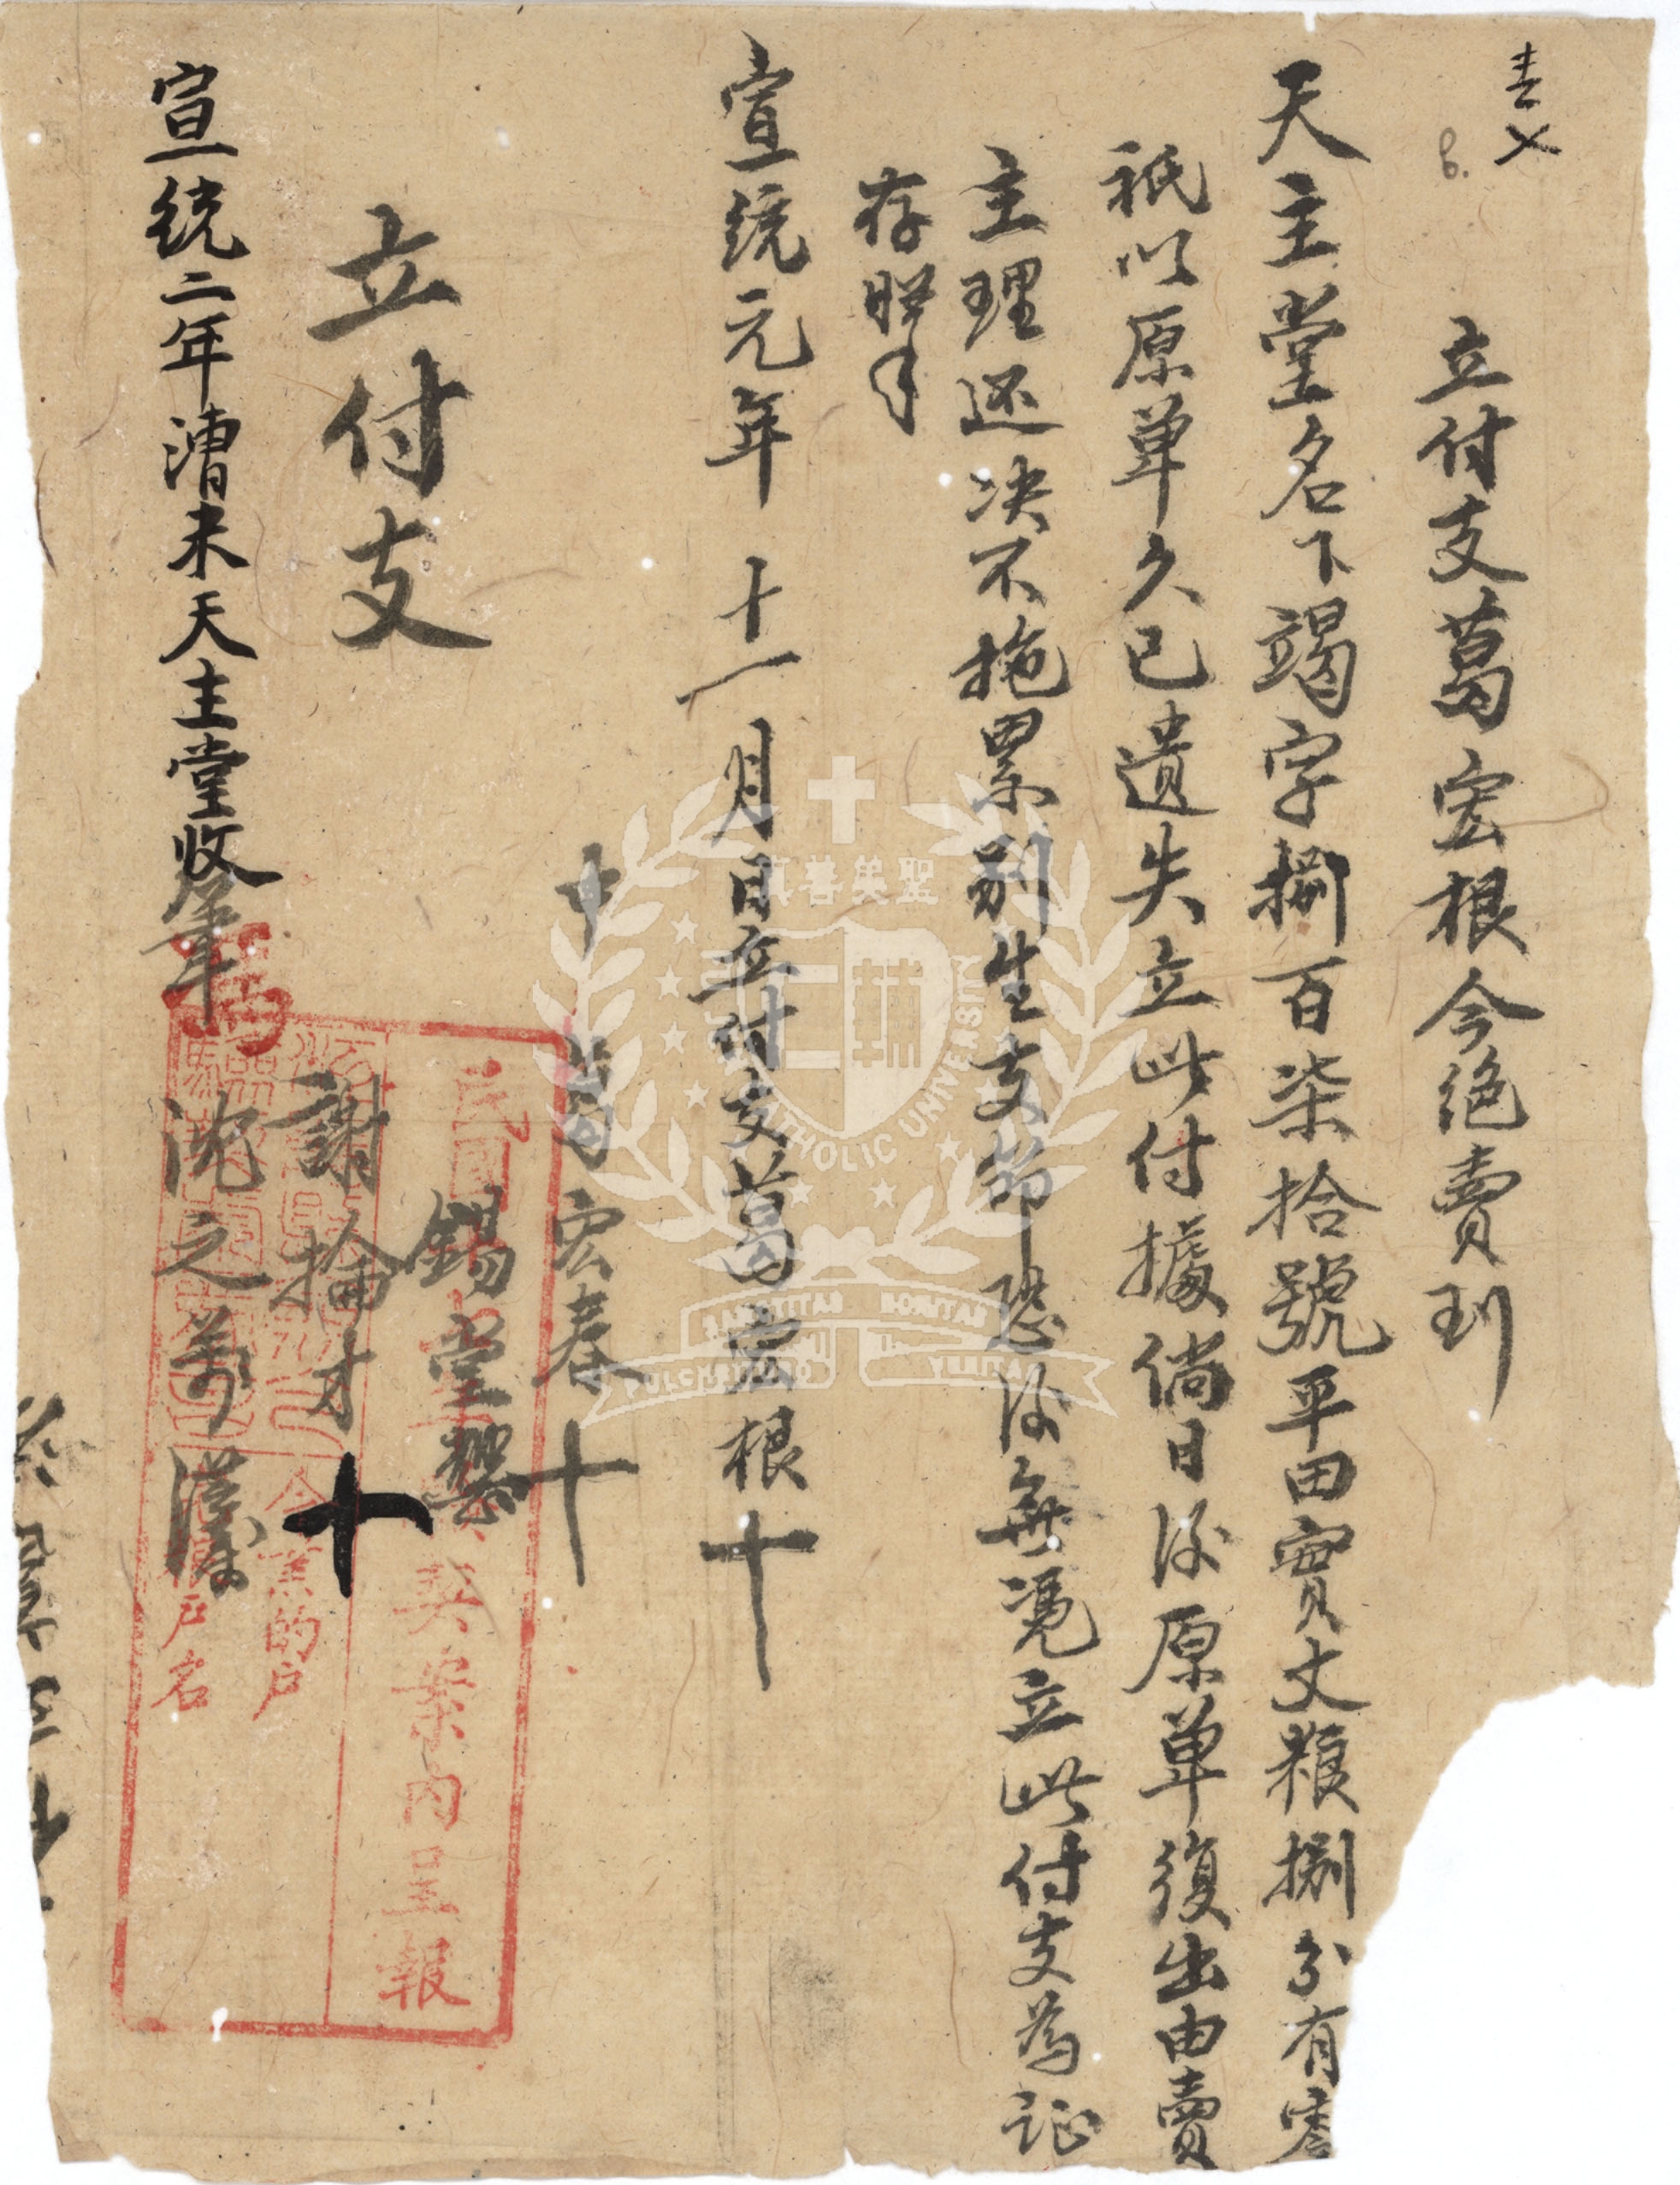 立付支葛宏根今絶賣到
天主堂名下竭字捌百柒拾號平田實丈粮捌分有寄
祇以原单久已遺失立此付據倘日後原单復出由賣
主理还决不拖累别生支節恐後無凭立此付支為証
存照
宣統元年十一月日立付支葛宏根十
中葛宏春十
錫堂
謝掄才十
沈之
立付支
宣統二年漕米天主堂收
民國
契案内呈報
的户
户名
聖美善真
CATHOLIC UNIVERSITY
SANCTITAS BONITAS
PULCHRITUDO VERITAS